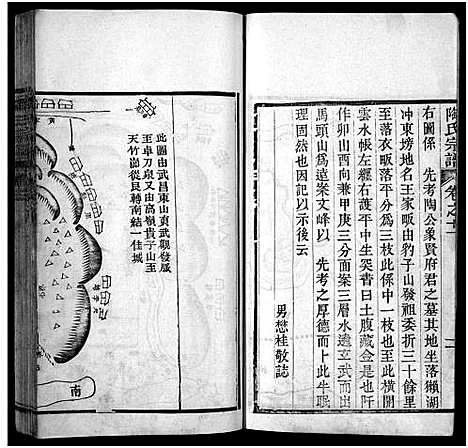 陶氏宗譜
卷之十二
右圖係 先考陶公象賢府君之墓其地坐落獺湖
冲東塝地名王家畈由豹子山發祖委折三十餘里
至落衣畈落平分為三枝此係中一枝也至此橫開
雲水帳左纏右護平中生突昔日土腹藏金是也阡
作卯山酉向兼甲庚三分面案三層水遶玄武而出
馬頭山為遠案文峰與 先考之厚德而上此牛眠
理固然也因記以示後云
男懋桂敬誌
此圖由武昌東山真武觀發脉
至卓刀泉又由高嶺貴子山至
天竹崗從艮轉南結一佳城
南